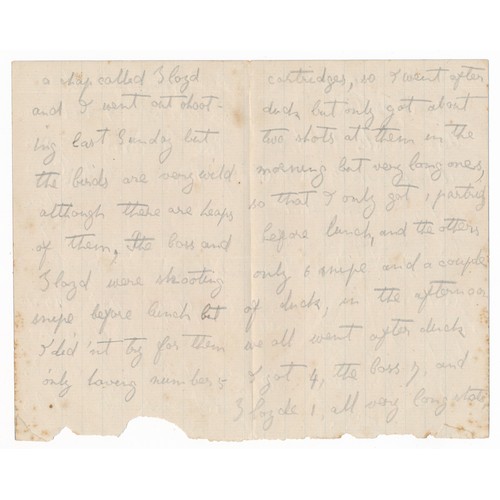 a chap called Floyd
and I went out shoot-
ing last Sunday but
the birds are very wild
although there are heaps
of them, The boss and
Floyd were shooting
snipe before lunch but
I did'nt try for them
only having number 5
cartridges, so I went after
duck but only got about
two shots at them in the
morning but very long ones,
so that I only got 1 partridge
before lunch, and the others
only 6 snipe and a couple
of duck, in the afternoon
we all went after duck
I got 4, the boss 7, and
1, all very long shots